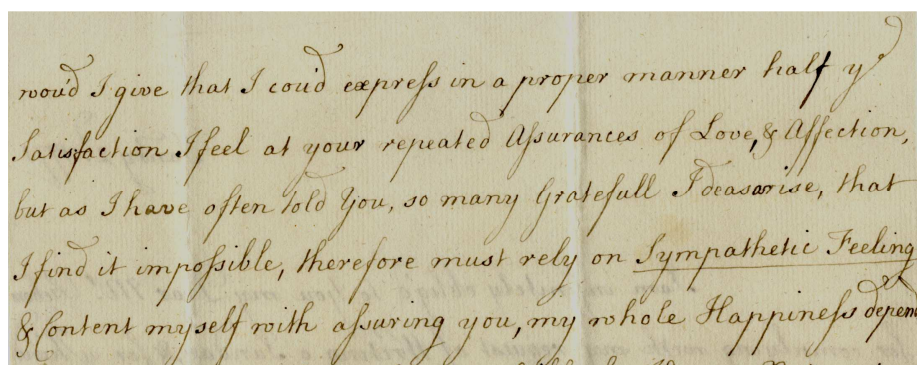 wou'd I give that I cou'd express in a proper manner half ye
Satisfaction I feel at your repeated Assurances of Love, & Affection,
but as I have often told You, so many Gratefull Ideas arise, that
I find it impossible, therefore must rely on Sympathetic Feeling
& Content myself with assuring you, my whole Happiness depen